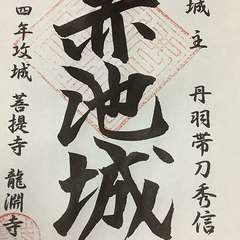 城主 丹羽帯刀秀信
赤池城
四年攻城 菩提寺 龍淵寺